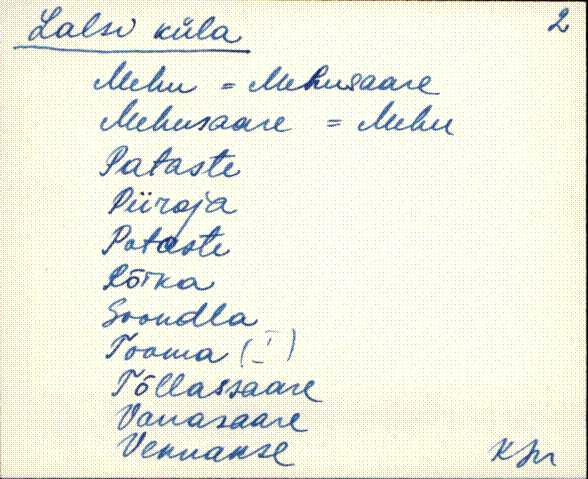 Lalsi küla 2
Mehu = Mehusaare
Mehusaare = Mehu
Pataste
Piiroja
Potaste
Rõika
Soondla
Tooma (I)
Tõllassaare
Vanasaare